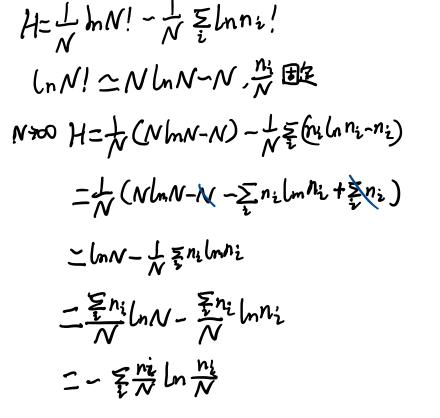 H=1/N ln N! - 1/N Σ_i ln n_i!
ln N! ≃ N ln N - N , n_i/N 固定
N→∞ H=1/N (N ln N - N) - 1/N Σ_i (n_i ln n_i - n_i)
= 1/N (N ln N - N - Σ_i n_i ln n_i + Σ_i n_i )
≃ ln N - 1/N Σ_i n_i ln n_i
= Σ_i n_i/N ln N - Σ_i n_i/N ln n_i
= - Σ_i n_i/N ln n_i/N